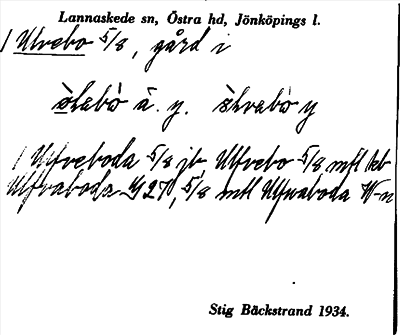 Lannaskede sn, Östra hd, Jönköpings l.
1 Ulvebo 5/8, gård i
ä. y. y
1 Ulfveboda 5/8 jb Ulfvebo 5/8 mtl
Ulfvaboda 5/8 mtl Ulfvaboda
Stig Bäckstrand 1934.